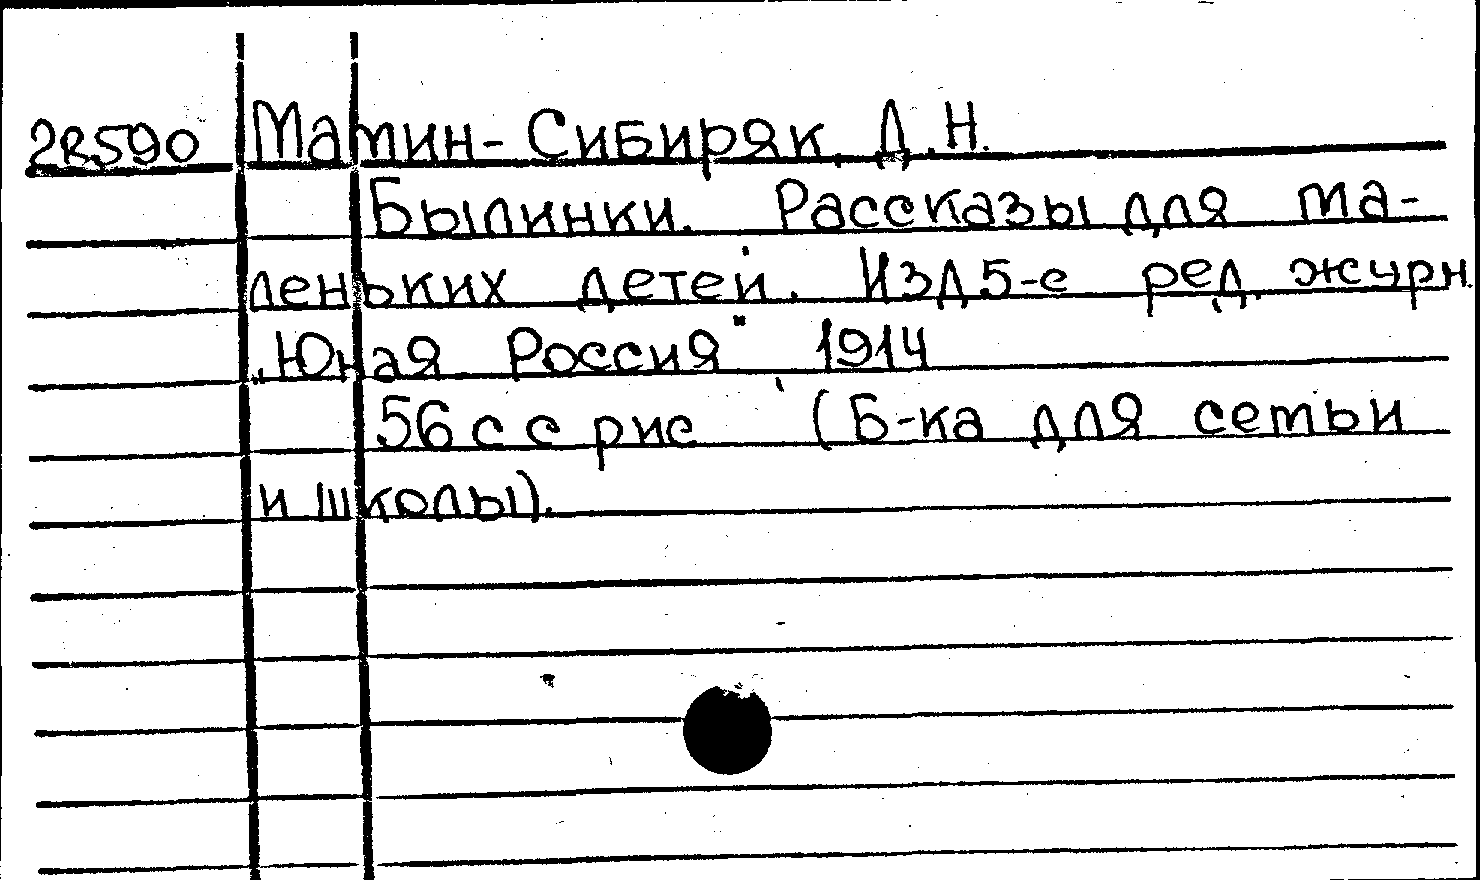 28590 Мамин-Сибиряк, Д.Н.
Былинки. Рассказы для ма-
леньких детей. Изд 5-е ред. журн.
„Юная Россия" 1914
56 с с рис (Б-ка для семьи
и школы).